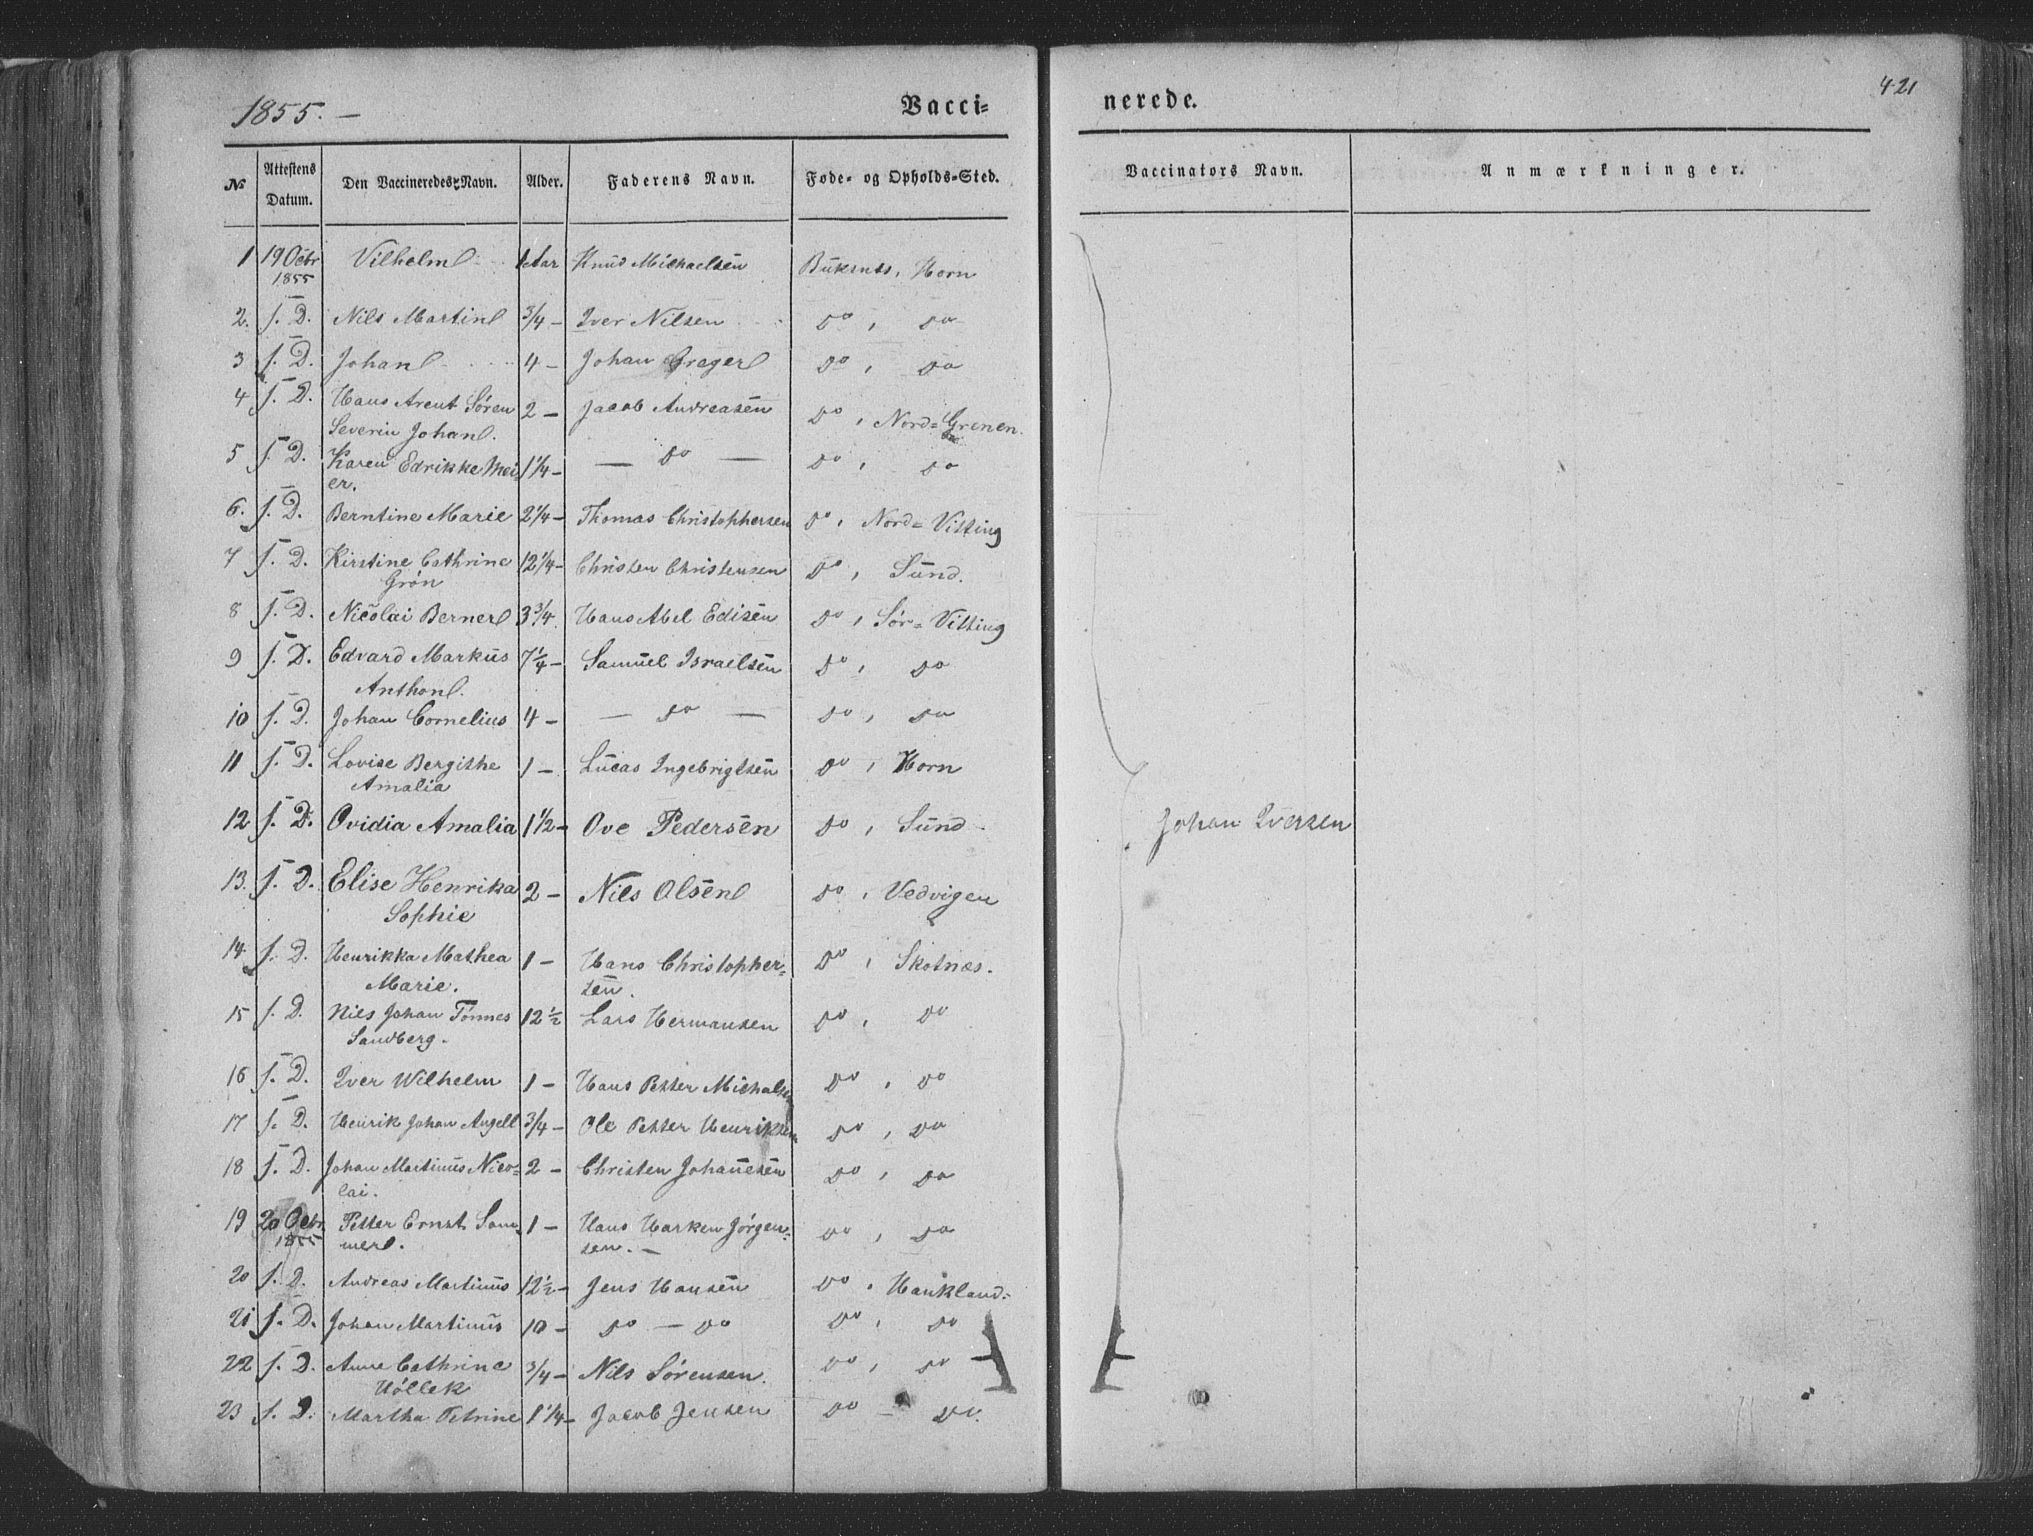 1855. —
Vacci=
nerede.
421
№ Attestens Datum. Den Vaccineredes Navn. Alder. Faderens Navn. Føde- og Opholds-Sted. Vaccinators Navn. Anmærkninger.
1 19 Octbr 1855 Vilhelm 1 Aar Knud Michaelsen Buksnes, Horn
2. s. D. Nils Martin 3/4 – Iver Nilsen do, do
3 s. D. Johan 4 – Johan Greger do, do
4 s. D. Hans Arent Søren 2 – Jacob Andreasen do, Nord= Grenen
Severin Johan.
5 s. D. Karen Edrikke Mei 1 1/4 – — do — do, do
er.
6. s. D. Berntine Marie 2 1/4 – Thomas Christophersen do, Nord= Vitting
7 s. D. Kirstine Cathrine 12 1/4 – Christen Christensen do, Sund.
Grøn
8 s. D. Nicolai Berner 3 3/4 Hans Abel Edisen do, Sør= Vitting
9 s. D. Edvard Markus 7 1/4 – Samuel Israelsen do, do
Anthon.
10 s. D. Johan Cornelius 4 – — do — do, do
11 s. D. Lovise Bergithe 1 – Lucas Ingebrigtsen do, Horn
Amalia
12 s. D. Ovidia Amalia 1 1/2 – Ove Pedersen do, Sund Johan Iversen
13. s. D. Elise Henrika 2 – Nils Olsen do, Vedvigen
Sophie
14 s. D. Henrikka Mathea 1 – Hans Christopher= do, Skotnæs.
Marie. sen.
15 s. D. Nils Johan Tønnes 12 1/2 Lars Hermansen do, do
Sandberg.
16 s. D. Iver Wilhelm 1 – Hans Petter Michalsen do, do
17 s. D. Henrik Johan Angell 3/4 – Ole Petter Henriksen do, do
18 s. D. Johan Martinus Nico= 2 – Christen Johannesen do, do
lai.
19 20 Octbr 1855 Petter Ernst Som 1 – Hans Harken Jørgen= do, do
mer. sen. —
20 s. D. Andreas Martinus 12 1/2 – Jens Hansen do, Haukland=
21 s. D. Johan Martinus 10 – do — do do, do
22 s. D. Anne Cathrine 3/4 – Nils Sørensen. do, do
Høllek
23 s. D. Martha Petrine 1 1/4 – Jacob Jensen do – do.